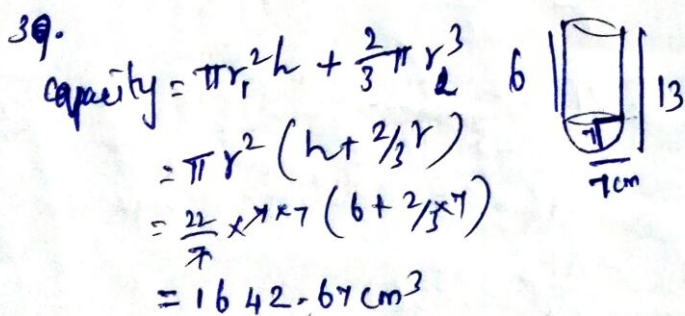 39.
capacity = πr₁²h + 2/3 π r₂³
= πr² (h + 2/3 r)
= 22/7 × 7 × 7 (6 + 2/3 × 7)
= 1642.67 cm³
6
13
7
7cm